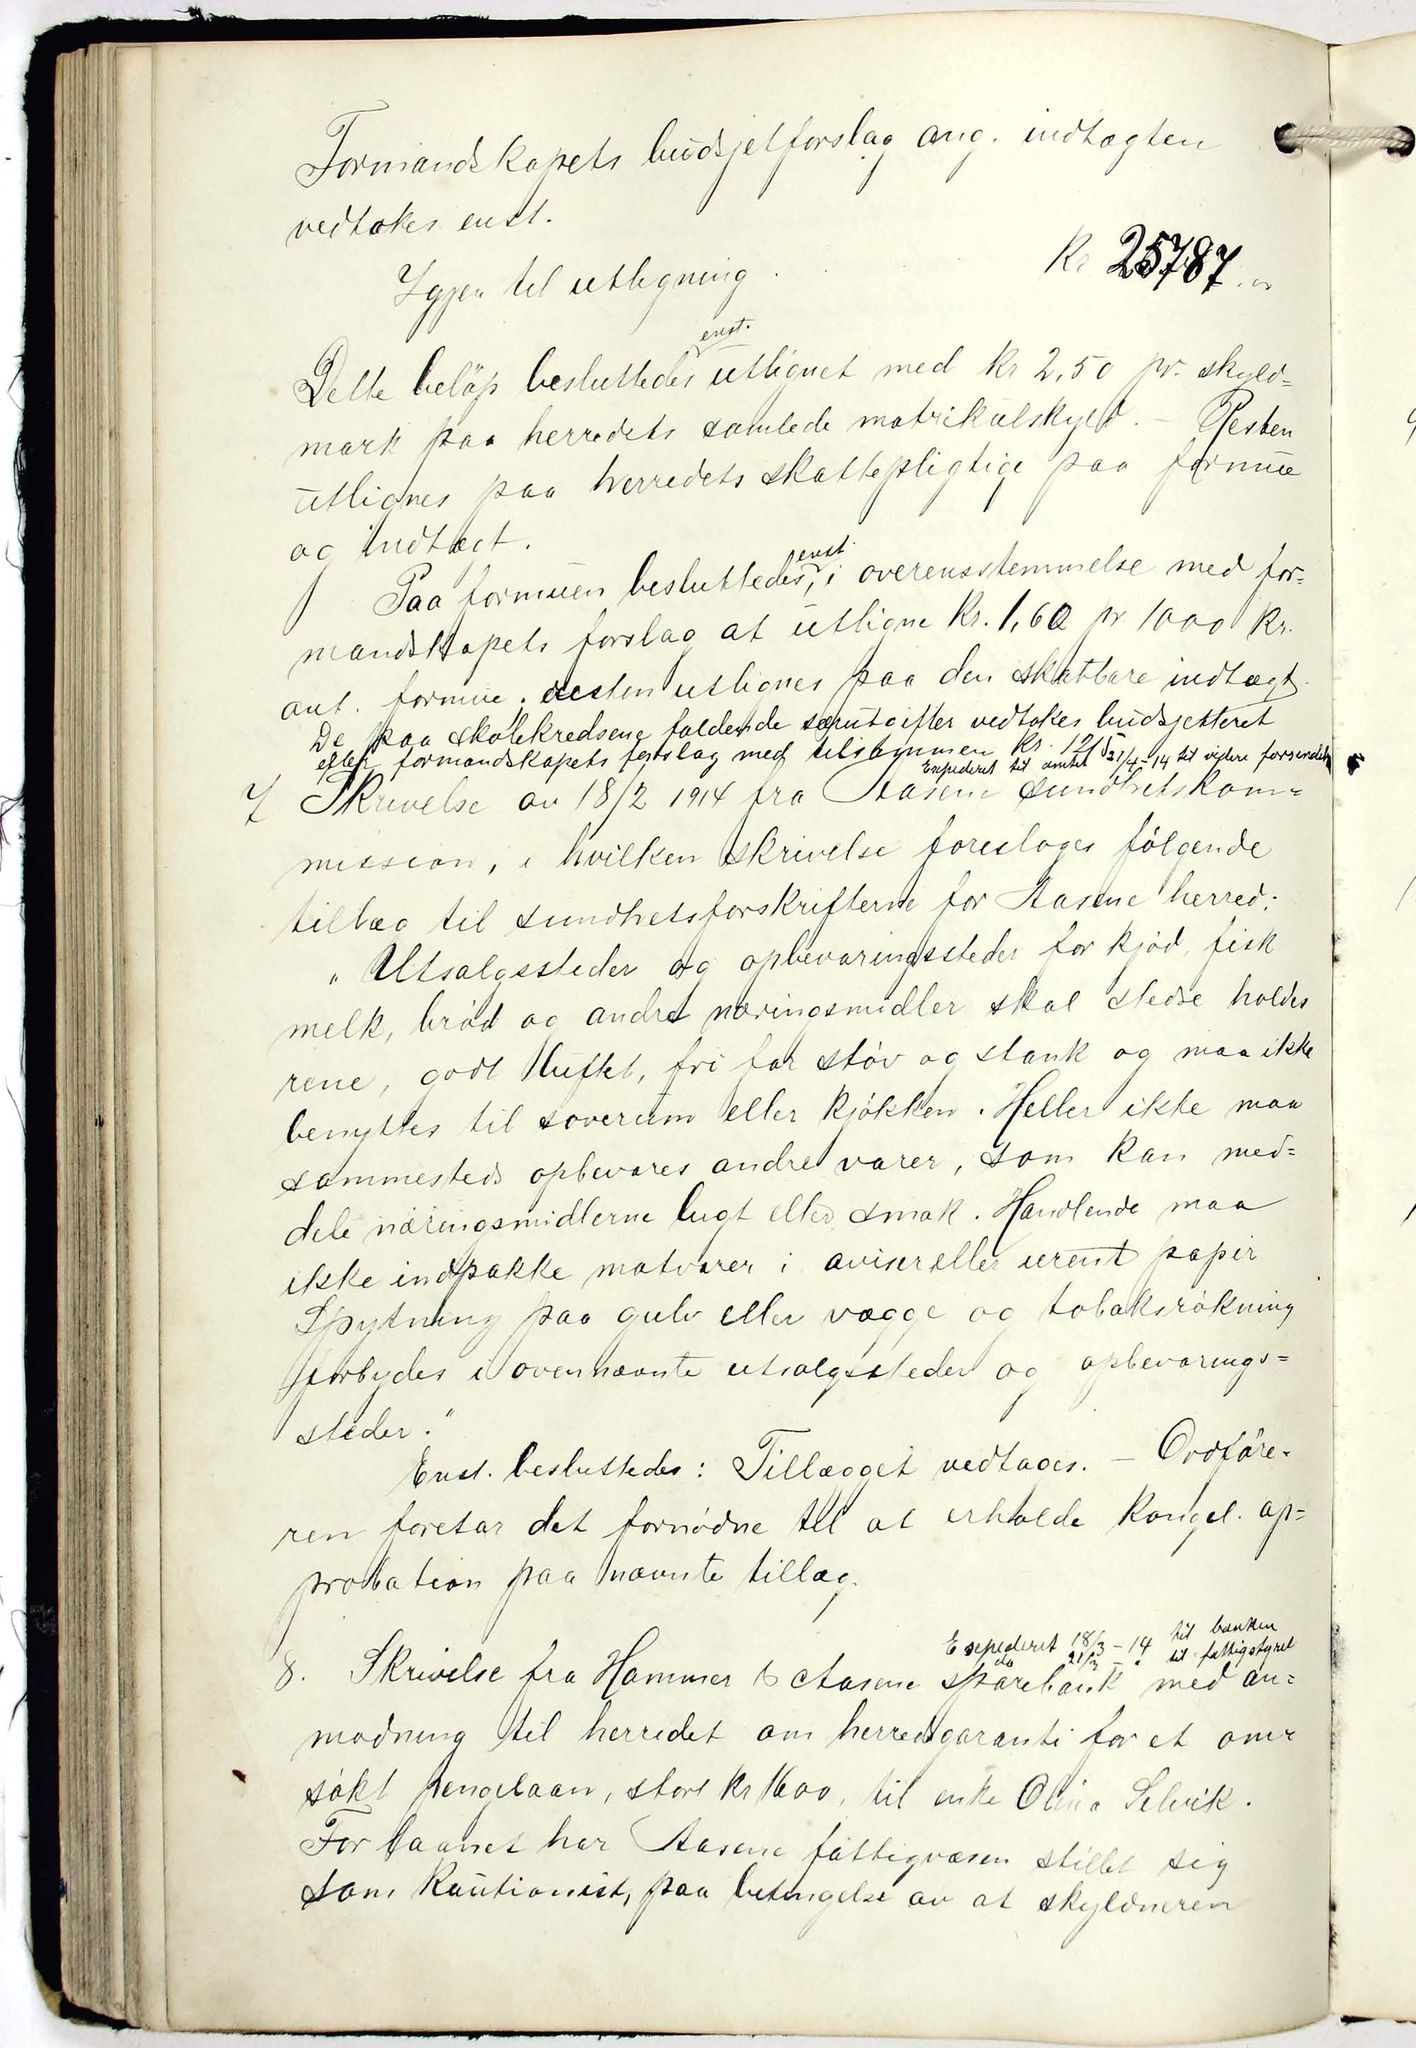 Formandskapets budsjetforslag ang. indtægten
vedtakes enst.
Igjen til utligning. Kr 25787.00
enst.
Dette beløp besluttedes utlignet med kr 2,50 pr. skyld=
mark paa herredets samlede matrikulskyld. – Resten
utlignes paa herredets skattepligtige paa formue
og indtægt.
enst.
Paa formuen besluttedes, i overensstemmelse med for=
mandskapets forslag at utligne Kr. 1,60 pr 1000 Kr.
ant. formue. resten utlignes paa den skatbare indtægt.
De paa skolekredsene faldende særutgifter vedtokes budsjetteret
efter formandskapets forslag med tilsammen kr.
Expederet til amtet 21/4-14 til videre forsendelse
7 Skrivelse av 18/2 1914 fra Aasene sundhetskom=
mission, i hvilken skrivelse foreslages følgende
tillæg til sundhetsforskrifterne for Aasene herred:
„Utsalgssteder og opbevaringssteder for kjød, fisk
melk, brød og andre næringsmidler skal stedse holdes
rene, godt luftet, fri for støv og stank og maa ikke
benyttes til soverum eller kjøkken. Heller ikke maa
sammesteds opbevares andre varer, som kan med=
dele næringsmidlerne lugt eller smak. Handlende maa
ikke indpakke matvarer i aviser eller urent papir
Spytning paa gulv eller vægge og tobaksrøkning
forbydes i ovennævnte utsalgssteder og opbevarings=
steder."
Enst. besluttedes: Tillægget vedtages. – Ordføre=
ren foretar det fornødne til at erholde kongel. ap=
probation paa nævnte tillæg.
Expederet 18/3 – 14 til banken
do 21/3 – " til fattigstyret
8. Skrivelse fra Hammer & Aasene sparebank med an=
modning til herredet om herredsgaranti for et om=
søkt pengelaan, stort kr 1600, til enke Olina Selvik.
For laanet har Aasene fattigvæsen stillet sig
som kautionist, paa betingelse av at skyldneren